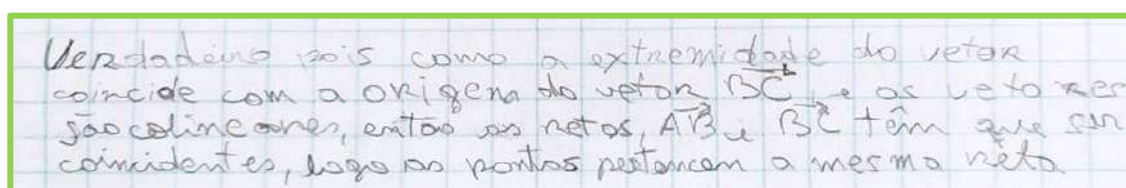 Verdadeiro pois como a extremidade do vetor
coincide com a origem do vetor BC, e os vetores
são colineares, então as retas, AB e BC têm que ser
coincidentes, logo os pontos pertencem a mesma reta